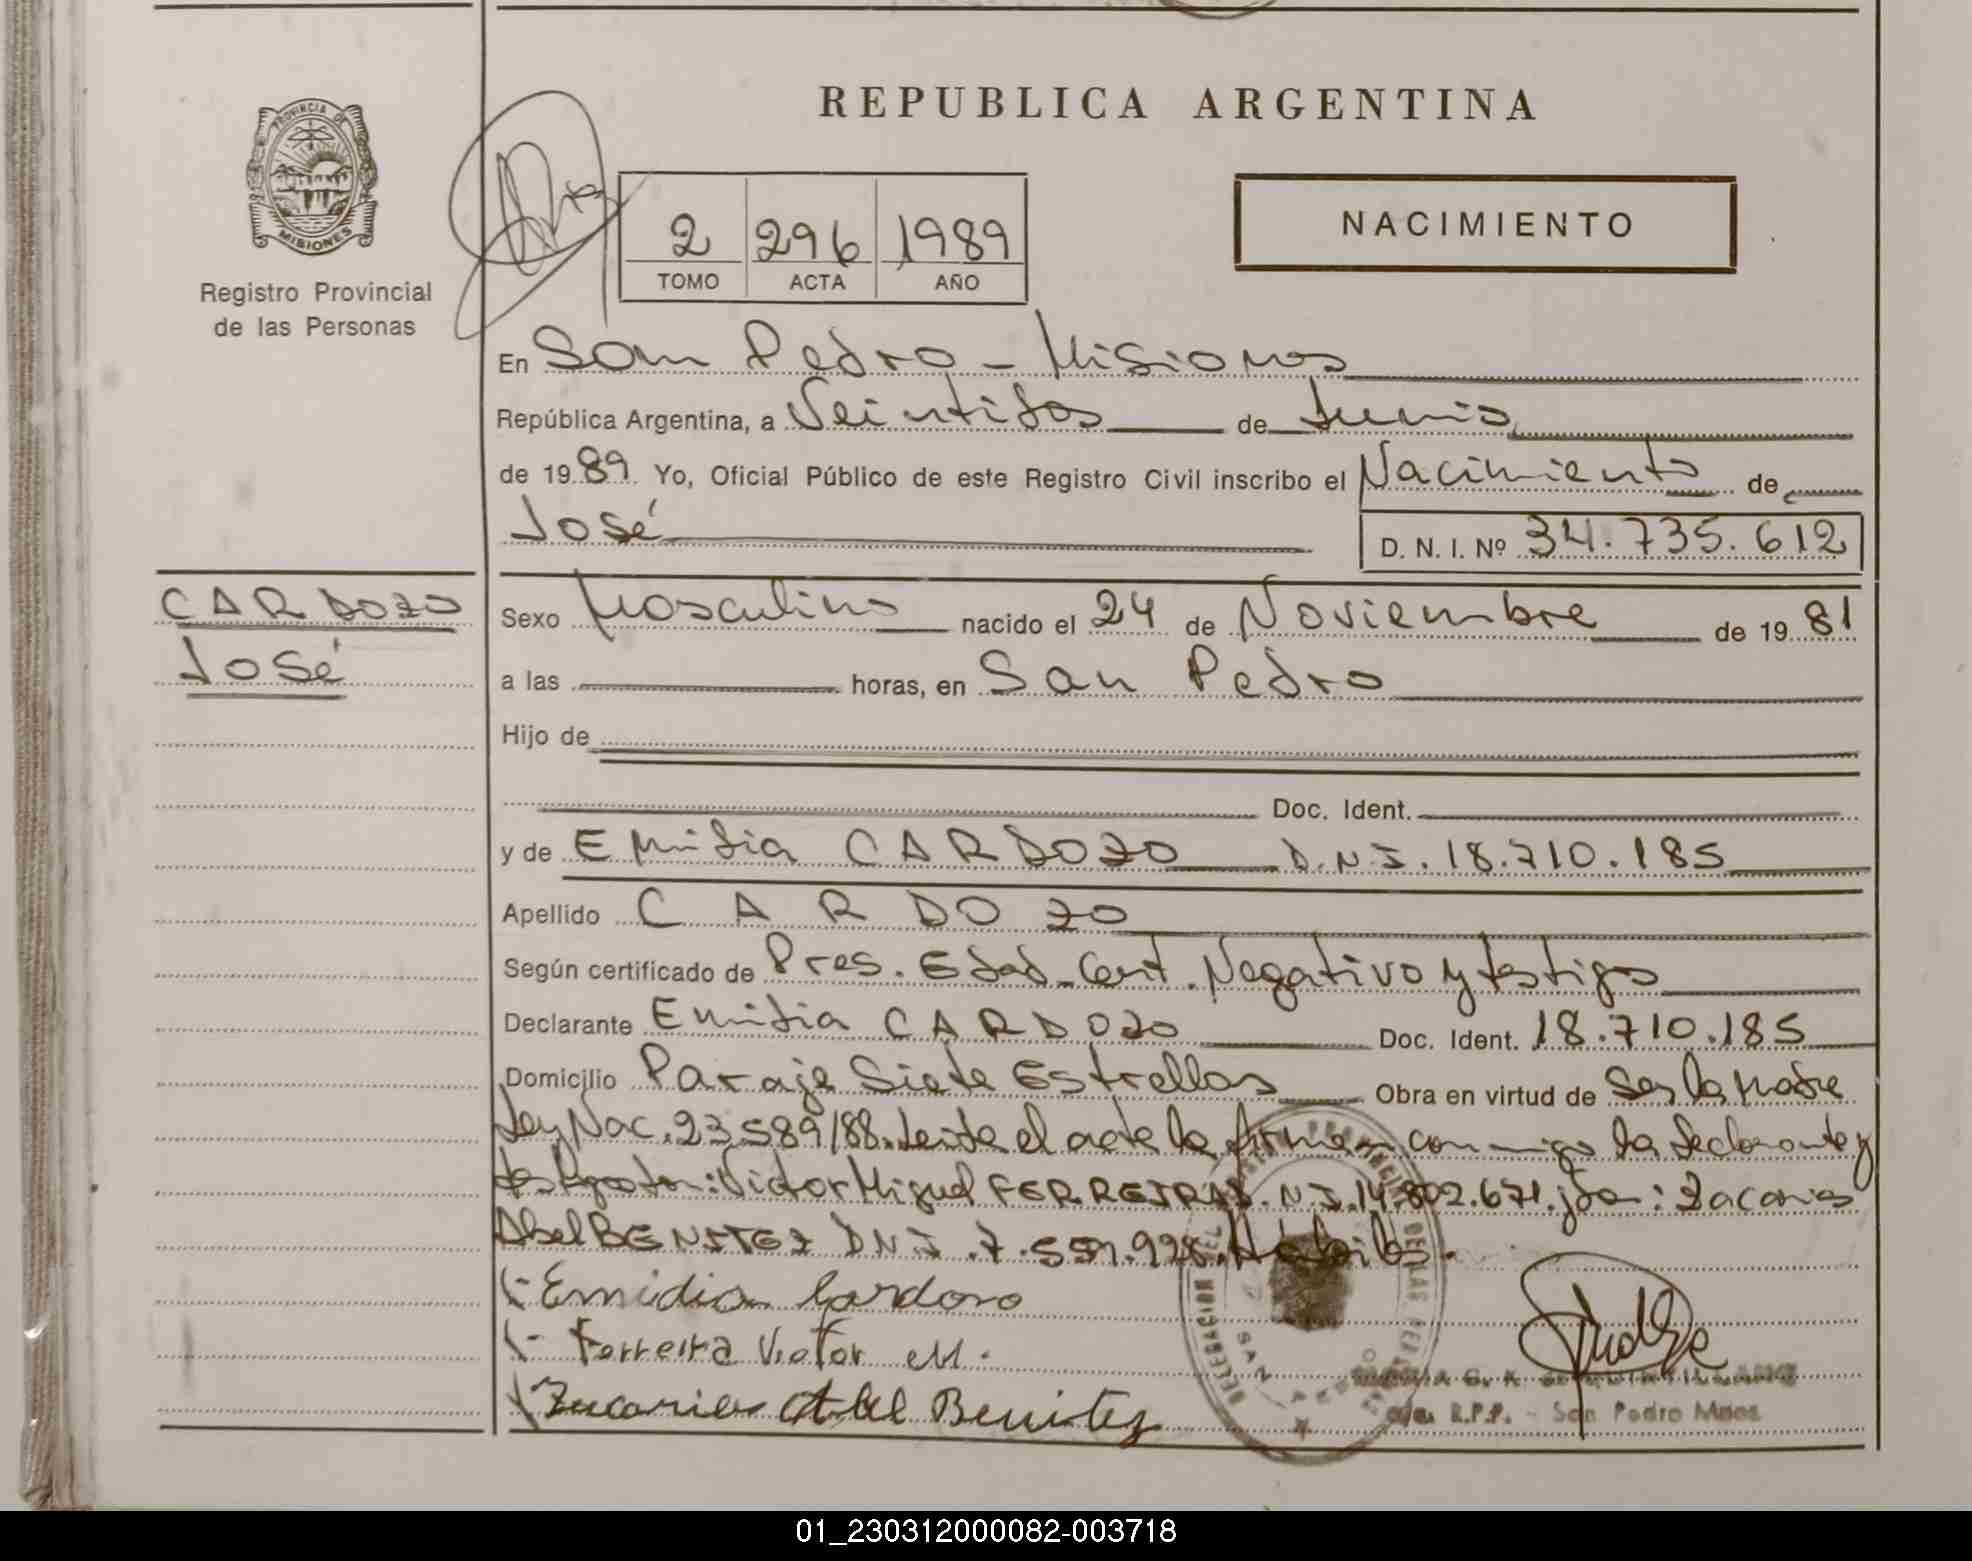 REPUBLICA ARGENTINA
PROVINCIA DE
MISIONES
Registro Provincial
de las Personas
2 296 1989
TOMO ACTA AÑO
NACIMIENTO
En San Pedro - Misiones
República Argentina, a Veintidos de Junio
de 1989 Yo, Oficial Público de este Registro Civil inscribo el Nacimiento de
José
D. N. I. Nº 34.735.612
CARDOZO
José
Sexo Masculino nacido el 24 de Noviembre de 1981
a las horas, en San Pedro
Hijo de
Doc. Ident.
y de Emidia CARDOZO D.N.I. 18.710.185
Apellido CARDOZO
Según certificado de Pres. Edad - Cert. Negativo y testigos
Declarante Emidia CARDOZO Doc. Ident. 18.710.185
Domicilio Paraje Siete Estrellas Obra en virtud de Ser la Madre
Ley Nac. 23.589/88. Leida el acta la firman conmigo la declarante y
testigos : Victor Miguel FERREIRA D.N.I. 14.802.671. : Zacarias
Abel BENITEZ DNI. 7.559.928. Habiles.
Emidia Cardozo
Ferreira Victor M.
Zacarias Abel Benitez
R.P.P. - San Pedro Mnes
01_230312000082-003718